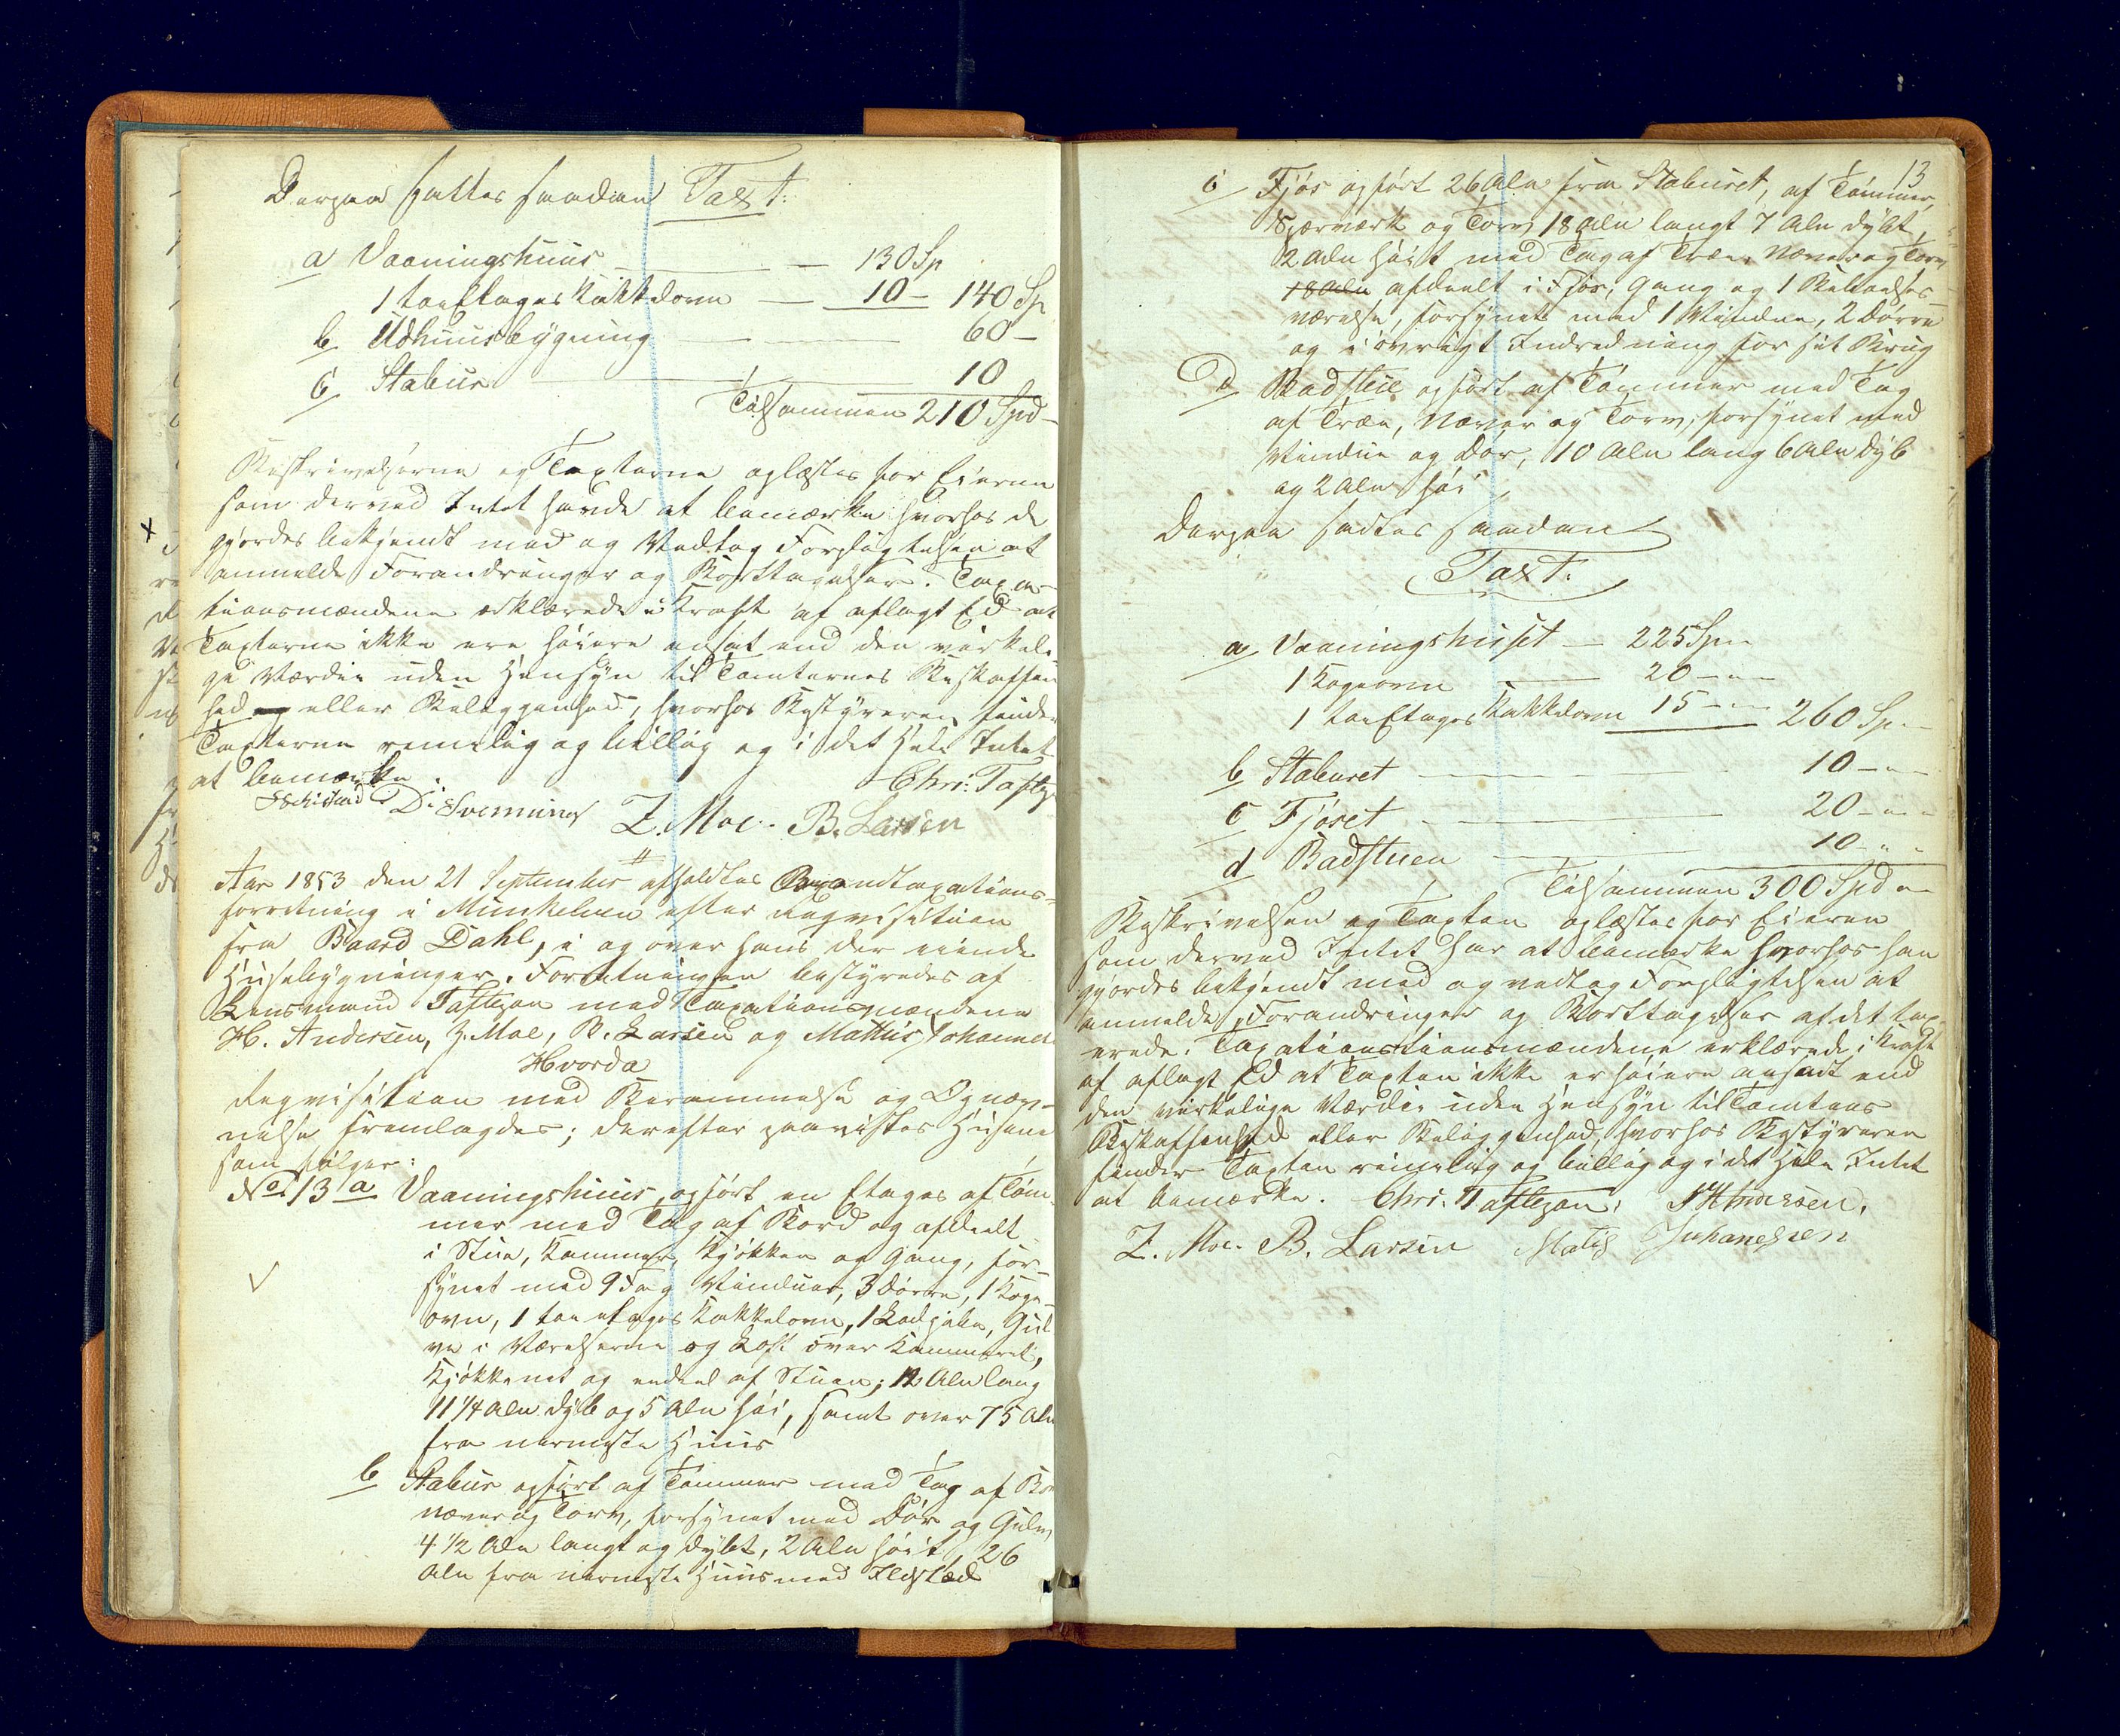 Derpaa sattes saadan Taxt:
a Vaaningshuus — 130 Sp
1 toeEtages Kakkelovn — 10 — 140 Sp
b Udhuusbygning — 60 —
c Stabur — 10
Tilsammen 210 Spd —
Beskrivelserne og Taxterne oplæstes for Eierne
som derved Intet havde at bemærke hvorhos de
gjordes bekjendt med og Vedtog Forpligtelsen at
anmelde Forandringer og Borttagelser. Taxa-
tionsmændene erklærede i Kraft af aflagt Ed at
Taxterne ikke ere høiere ansat end den virkeli-
ge Værdie uden Hensyn til Tomternes Beskaffen
hed og eller Beleggenhed, hvorhos Bestyreren finder
Taxterne rimelig og billig og i det Hele Intet
at bemærke.
Chr: Taftez
D: Svenning Z. Moe. B. Larsen
Aar 1853 den 21 September afholdtes Brandtaxations-
forretning i Munkelven efter Reqvisition
fra Baard Dahl, i og over hans der eiende
Husebygninger. Forretningen bestyredes af
Lensmand Taftezon med Taxationsmændene
H. Andersen, Z. Moe, B. Larsen og Mathis Johannes
Hvorda
Reqvisition med Berammelse og Opnæv-
nelse fremlagdes; derefter paavistes Husene
som følger:
No 13 a Vaaningshuus, opført en Etages af Tøm-
mer med Tag af Bord og afdeelt
i Stue, Kammer, Kjøkken og Gang, for-
synet med 9 Fag Vinduer, 3 Dørre, 1 Koge-
ovn, 1 toe etages Kakkelovn, 1 Ladpibe, Gul
ve i Værelserne og Loft over Kammeret,
Kjøkkenet og endeel af Stuen; 12 Alen lang
11 1/4 Alen dyb og 5 Alen høi, samt over 75 Ale
fra nærmeste Huus
b Stabur opført af Tømmer med Tag af Bo
næver og Torv, forsynet med Dør og Gulv,
4 1/2 Alen langt og dybt, 2 Alen høit, 26
Alen fra nærmeste Huus med Ildsted
13
c Fjøs opført 26 Alen fra Staburet, af Tømmer,
Spærværk og Torv 18 Alen langt 7 Alen dybt,
2 Alen høit med Tag af Træe, Næver og Torv
18 Alen afdeelt i Fjøs, Gang og 1
værelse, forsynet med 1 Vindue, 2 Dørre
og i øvrigt Indredning for sit Brug
D Badstue opført af Tømmer med Tag
af Træe, Næver og Torv, forsynet med
Vindue og Dør, 10 Alen lang 6 Alen dyb
og 2 Alen høi
Derpaa sadtes saadan
Taxt:
a Vaaningshuset — 225 Sp —
1 Kogeovn — 20 — " —
1 toeEtages Kakkelovn 15 — " — 260 Sp. —
b Staburet — 10 — " —
c Fjøset — 20 — " —
d Badstuen — 10 " "
Tilsammen 300 Spd —
Beskrivelsen og Taxten oplæstes for Eieren
som derved Intet har at bemærke hvorhos han
gjordes bekjendt med og vedtog Forpligtelsen at
anmelde Forandringer og Borttagelser af det tax-
erede. Taxationstionsmændene erklærede i Kraft
af aflagt Ed at Taxten ikke er høiere ansadt end
den virkelige Værdie uden Hensyn til Tomtens
Beskaffenhed eller Beliggenhed, hvorhos Bestyreren
finder Taxten rimelig og billig og i det Hele Intet
at bemærke. Chr. Taftezon. H Andersen.
Z. Moe. B. Larsen Matis Johanesen